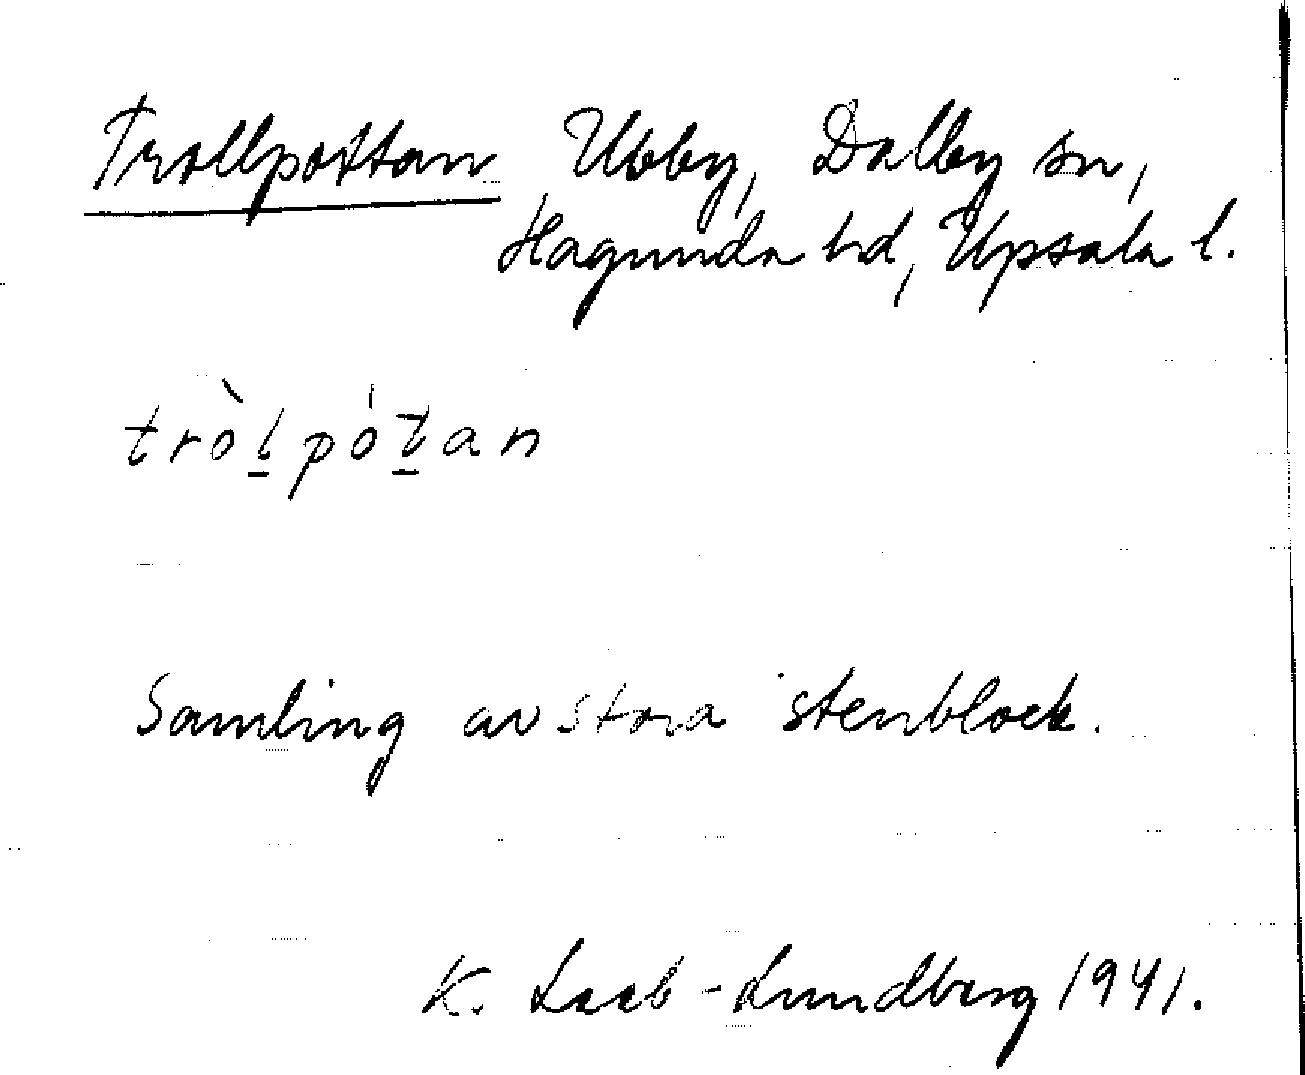 Trollpottan Ubby, Dalby sn,
Hagunda hd, Upsala l.
tròl̲pót̲an
Samling av stora stenblock.
K. Leeb-Lundberg 1941.